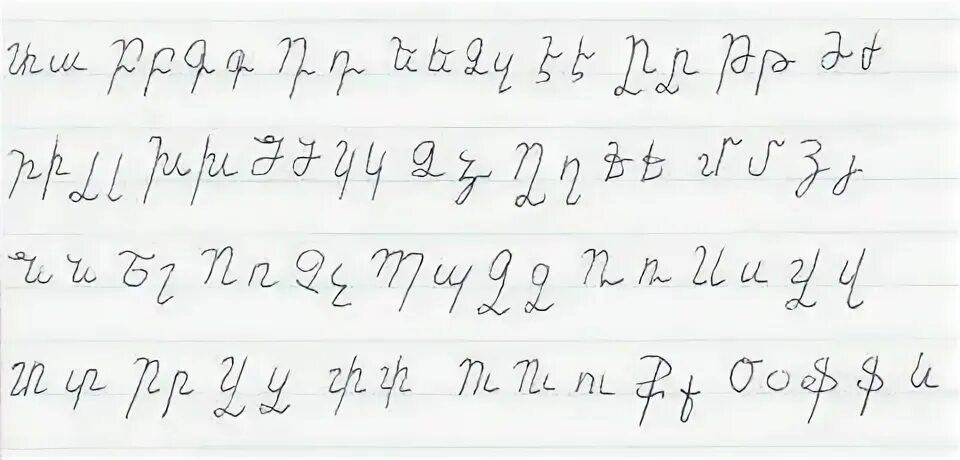 Աա Բբ Գգ Դդ Եե Զզ Էէ Ըը Թթ Ժժ
Իի Լլ Խխ Ծծ Կկ Ձձ Ղղ Ճճ Մմ Յյ
Նն Շշ Ոո Չչ Պպ Ջջ Ռռ Սս Վվ
Տտ Րր Ցց Փփ ՈՒ Ու ու Քք Օօ Ֆֆ և